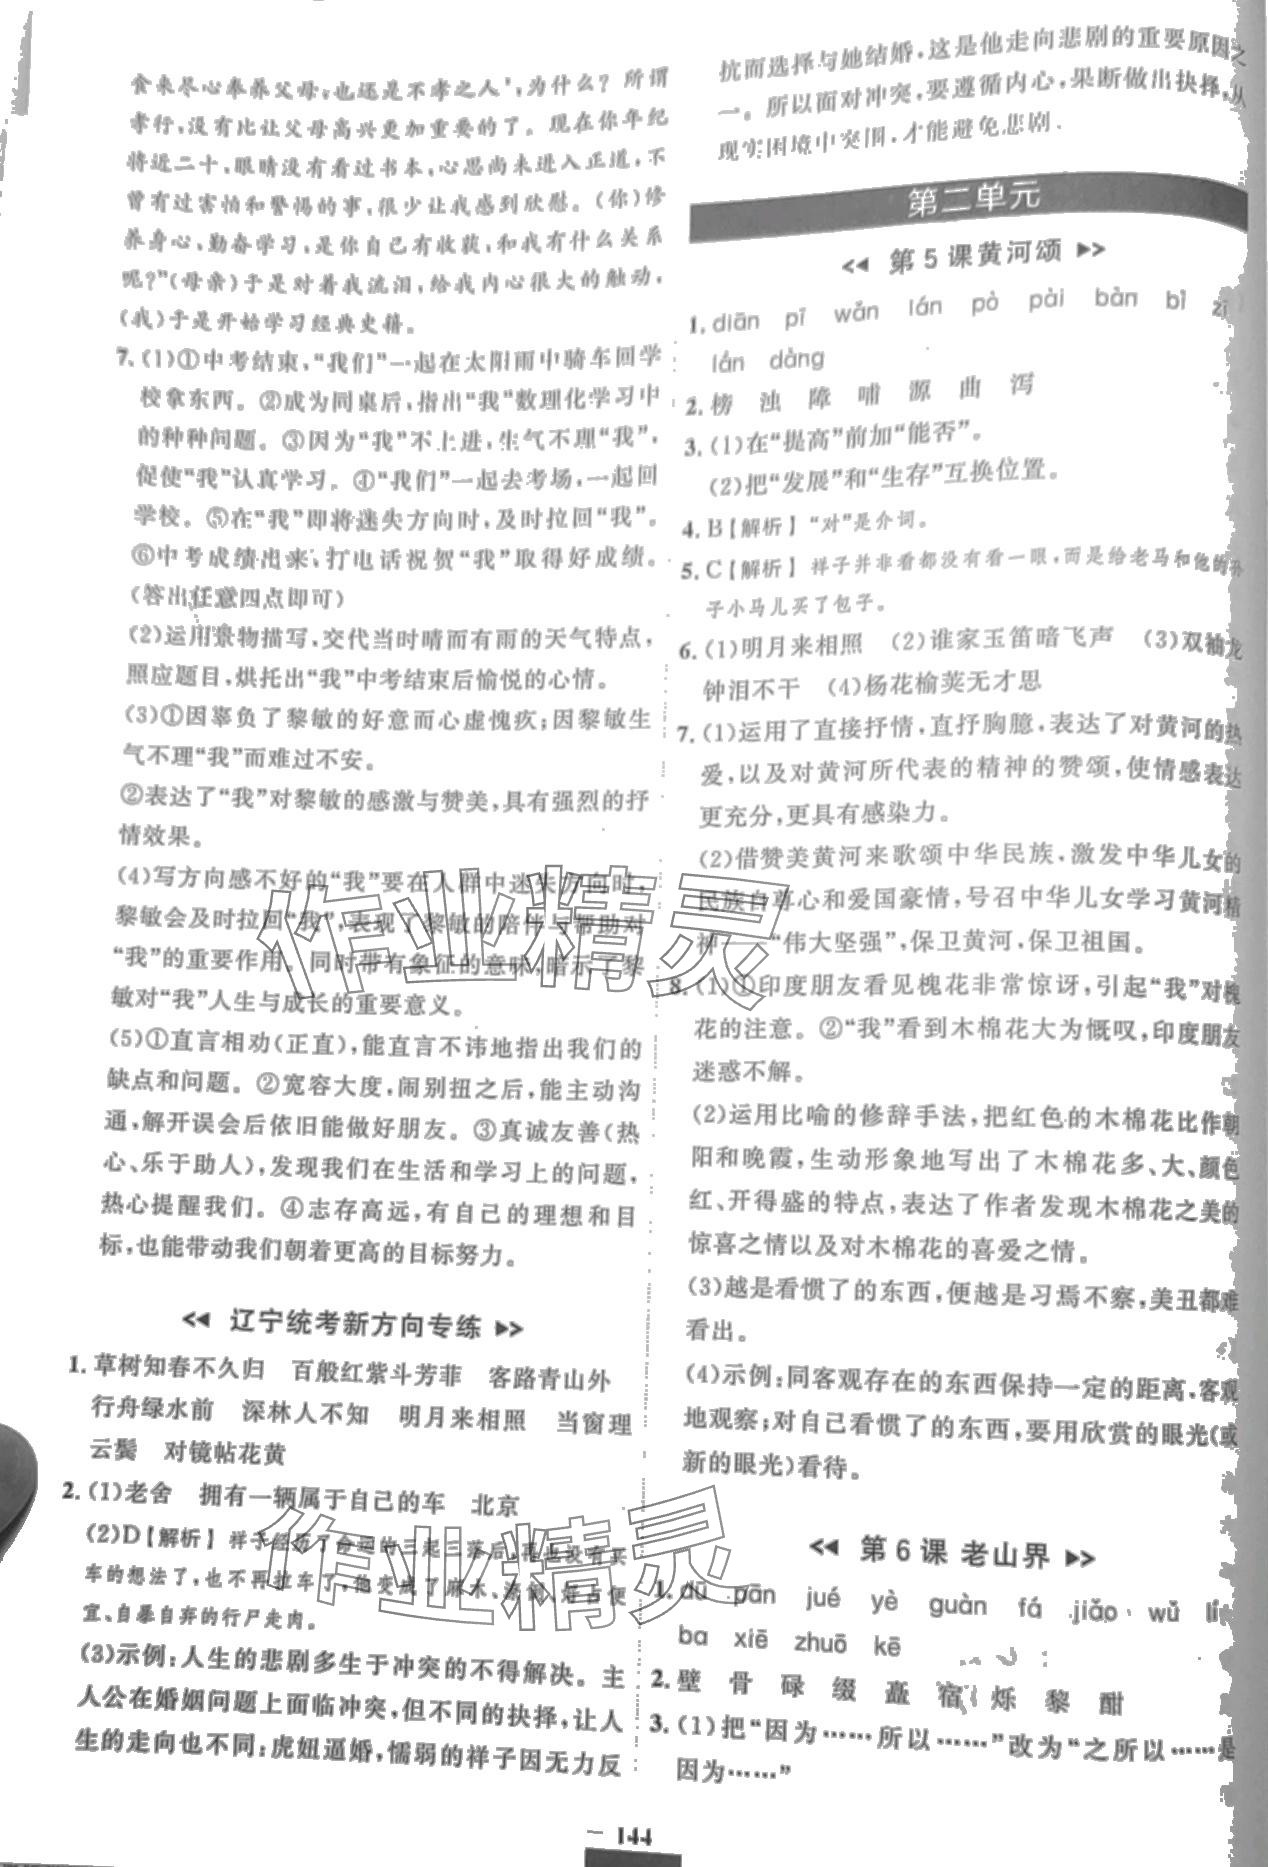 食来尽心奉养父母，也还是不孝之人’，为什么？所谓
孝行，没有比让父母高兴更加重要的了。现在你年纪
将近二十，眼睛没有看过书本，心思尚未进入正道，不
曾有过害怕和警惕的事，很少让我感到欣慰。（你）修
养身心，勤奋学习，是你自己有收获，和我有什么关系
呢？”（母亲）于是对着我流泪，给我内心很大的触动，
（我）于是开始学习经典史籍。
7.（1）①中考结束，“我们”一起在太阳雨中骑车回学
校拿东西。②成为同桌后，指出“我”数理化学习中
的种种问题。③因为“我”不上进，生气不理“我”，
促使“我”认真学习。④“我们”一起去考场，一起回
学校。⑤在“我”即将迷失方向时，及时拉回“我”。
⑥中考成绩出来，打电话祝贺“我”取得好成绩。
（答出任意四点即可）
（2）运用景物描写，交代当时晴而有雨的天气特点，
照应题目，烘托出“我”中考结束后愉悦的心情。
（3）①因辜负了黎敏的好意而心虚愧疚；因黎敏生
气不理“我”而难过不安。
②表达了“我”对黎敏的感激与赞美，具有强烈的抒
情效果。
（4）写方向感不好的“我”要在人群中迷失方向时，
黎敏会及时拉回“我”，表现了黎敏的陪伴与帮助对
“我”的重要作用。同时带有象征的意味，暗示了黎
敏对“我”人生与成长的重要意义。
（5）①直言相劝（正直），能直言不讳地指出我们的
缺点和问题。②宽容大度，闹别扭之后，能主动沟
通，解开误会后依旧能做好朋友。③真诚友善（热
心、乐于助人），发现我们在生活和学习上的问题，
热心提醒我们。④志存高远，有自己的理想和目
标，也能带动我们朝着更高的目标努力。
辽宁统考新方向专练
1.草树知春不久归 百般红紫斗芳菲 客路青山外
行舟绿水前 深林人不知 明月来相照 当窗理
云鬓 对镜帖花黄
2.（1）老舍 拥有一辆属于自己的车 北京
（2）D【解析】祥子经历了命运的三起三落后，再也没有买
车的想法了，也不再拉车了，他变成了麻木、潦倒、好占便
宜、自暴自弃的行尸走肉。
（3）示例：人生的悲剧多生于冲突的不得解决。主
人公在婚姻问题上面临冲突，但不同的抉择，让人
生的走向也不同：虎妞逼婚，懦弱的祥子因无力反
抗而选择与她结婚，这是他走向悲剧的重要原因之
一。所以面对冲突，要遵循内心，果断做出抉择，从
现实困境中突围，才能避免悲剧．
第二单元
第5课黄河颂
1. diān pī wǎn lán pò pài bàn bì zī
lán dàng
2. 榜 浊 障 哺 源 曲 泻
3.（1）在“提高”前加“能否”。
（2）把“发展”和“生存”互换位置。
4. B【解析】“对”是介词。
5. C【解析】祥子并非看都没有看一眼，而是给老马和他的孙
子小马儿买了包子。
6.（1）明月来相照 （2）谁家玉笛暗飞声 （3）双袖龙
钟泪不干 （4）杨花榆荚无才思
7.（1）运用了直接抒情，直抒胸臆，表达了对黄河的热
爱，以及对黄河所代表的精神的赞颂，使情感表达
更充分，更具有感染力。
（2）借赞美黄河来歌颂中华民族，激发中华儿女的
民族自尊心和爱国豪情，号召中华儿女学习黄河精
神——“伟大坚强”，保卫黄河，保卫祖国。
8.（1）①印度朋友看见槐花非常惊讶，引起“我”对槐
花的注意。②“我”看到木棉花大为慨叹，印度朋友
迷惑不解。
（2）运用比喻的修辞手法，把红色的木棉花比作朝
阳和晚霞，生动形象地写出了木棉花多、大、颜色
红、开得盛的特点，表达了作者发现木棉花之美的
惊喜之情以及对木棉花的喜爱之情。
（3）越是看惯了的东西，便越是习焉不察，美丑都难
看出。
（4）示例：同客观存在的东西保持一定的距离，客观
地观察；对自己看惯了的东西，要用欣赏的眼光（或
新的眼光）看待。
第6课 老山界
1. dū pān jué yè guàn fá jiǎo wǔ lí
ba xiē zhuō kē
2. 壁 骨 碌 缀 矗 宿 烁 黎 酣
3.（1）把“因为……所以……”改为“之所以……是
因为……”
144
作业精灵
作业精灵